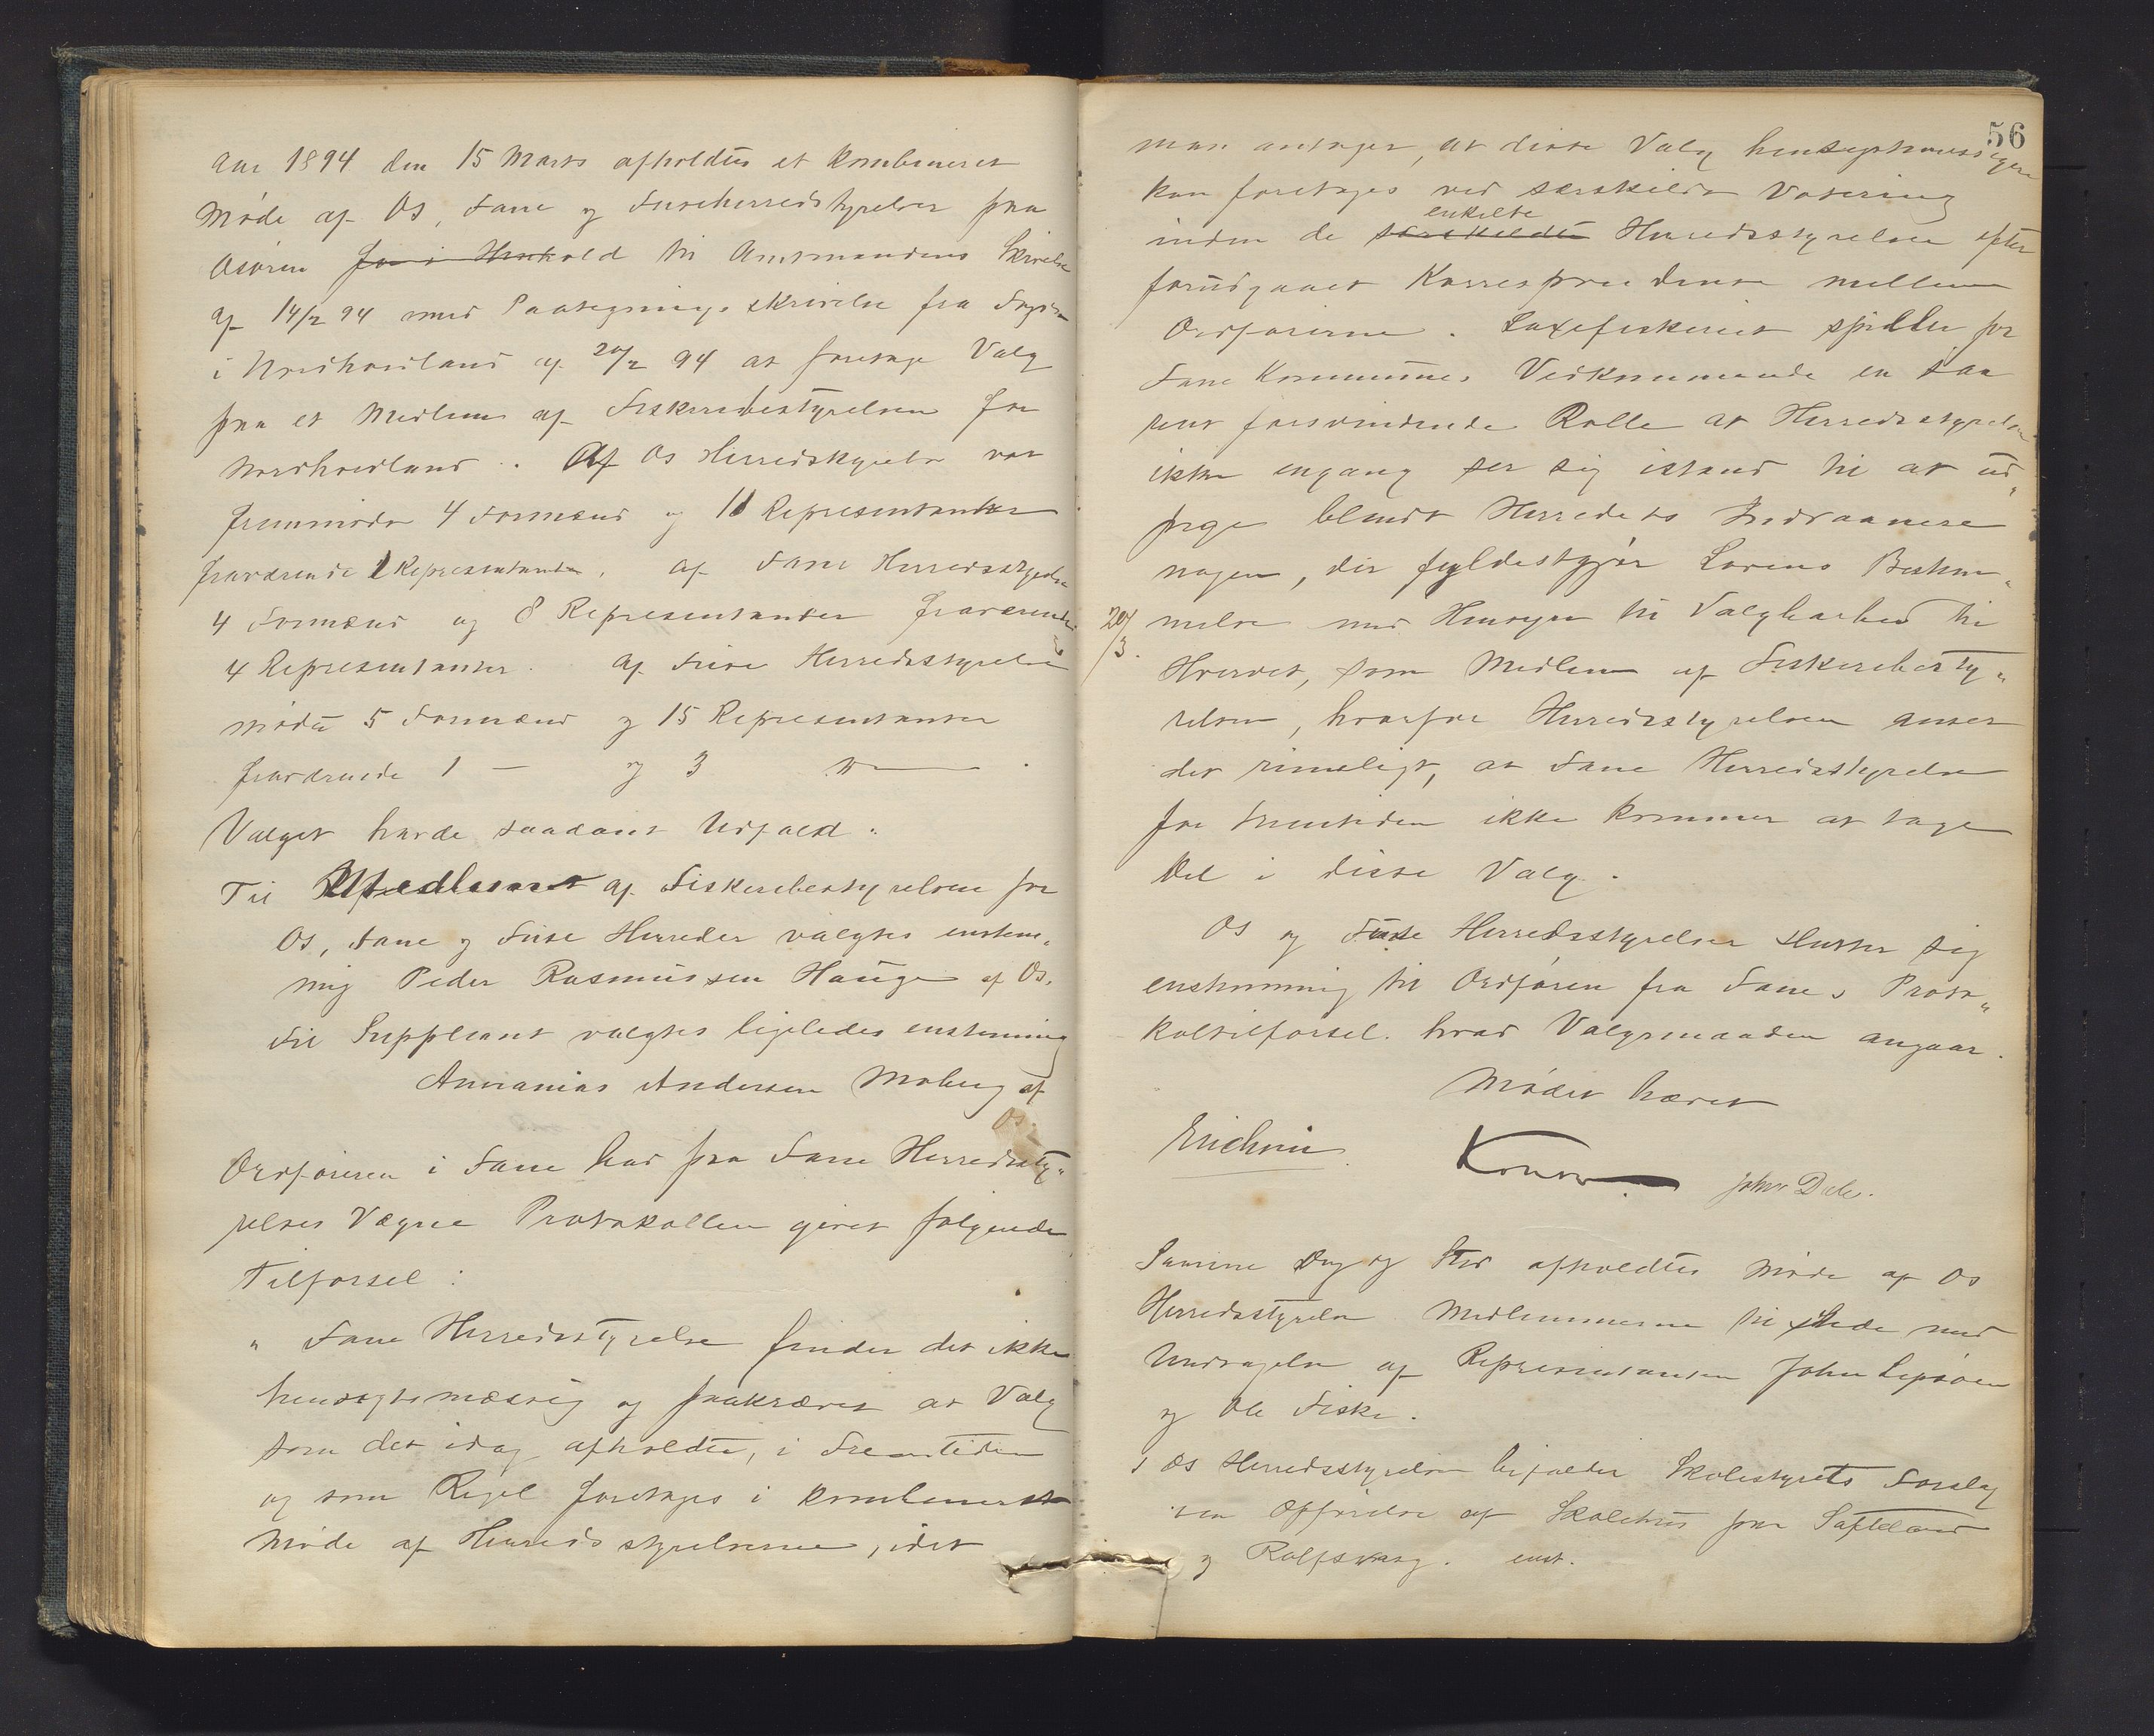 Aar 1894 den 15 Marts afholdtes et kombineret
Møde af Os, Fane og Fuseherredstyrelser paa
Osøren for i Henhold til Amtmandens Skrivelse
af 14/2 94 med Paategningsskrivelse fra Fogden
i Nordhordland af 20/2 94 at foretage Valg
paa et Medlem af Fiskeribestyrelsen for
Nordhordland. Af Os Herredstyrelse var
fremmødte 4 Formænd og 11 Representanter
fraværende 1 Representant. af Fane Herredsstyrelse
4 Formænd og 8 Representanter fraværende
4 Representanter. Af Fuse Herredsstyrelse
mødte 5 Formænd og 15 Representanter
fraværende 1 — og 3 —"— .
Valget havde saadant Udfald:
Til Medlem af Fiskeribestyrelsen for
Os, Fane og Fuse Herreder valgtes enstem-
mig Peder Rasmussen Hauge af Os.
Til Suppleant valgtes ligeledes enstemmig
Annanias Andersen Moberg af
Os.
Ordføreren i Fane har paa Fane Herredssty-
relses Vegne Protokollen givet følgende
Tilførsel:
" Fane Herredsstyrelse finder det ikke
hensigtsmæssig og paakrævet at Valg
som det idag afholdte, i Fremtiden
og som Regel foretages i kombineret
Møde af Herredsstyrelserne, idet
56
man antager, at disse Valg hensigtsmæssigere
kan foretages ved særskildt Votering
enkelte
inden de særskildte Herredsstyrelser efter
forudgaaet Korrespondense mellem
Ordførerne. Laxefiskeriet spiller for
Fane Kommunes Vedkommende en saa
rent forsvindende Rolle at Herredsstyrelsen
ikke engang ser sig istand til at ud-
pege blandt Herredets Indvaanere
nogen, der fyldestgjør Lovens Bestem-
20/3. melse med Hensyn til Valgbarhed til
Hvervet, som Medlem af Fiskeribesty-
relsen, hvorfor Herredsstyrelsen anser
det rimeligt, at Fane Herredsstyrelse
for Fremtiden ikke kommer at tage
Del i disse Valg.
Os og Fuse Herredsstyrelser slutter sig
enstemmig til Ordføren fra Fanes Proto-
koltilførsel. hvad Valgsmaaden angaar.
Mødet hævet
Erichsen Konow. Johs Dale.
Samme Dag og Sted afholdtes Møde af Os
Herredsstyrelse Medlemmerne tilstede med
Undtagelse af Representanten John Lepsøen
og Ole Fiske.
1 Os Herredsstyrelsen bifalder Skolestyrets Forslag
om Opførelse af Skolehus paa Søfteland
og Rolfsvaag. enst.